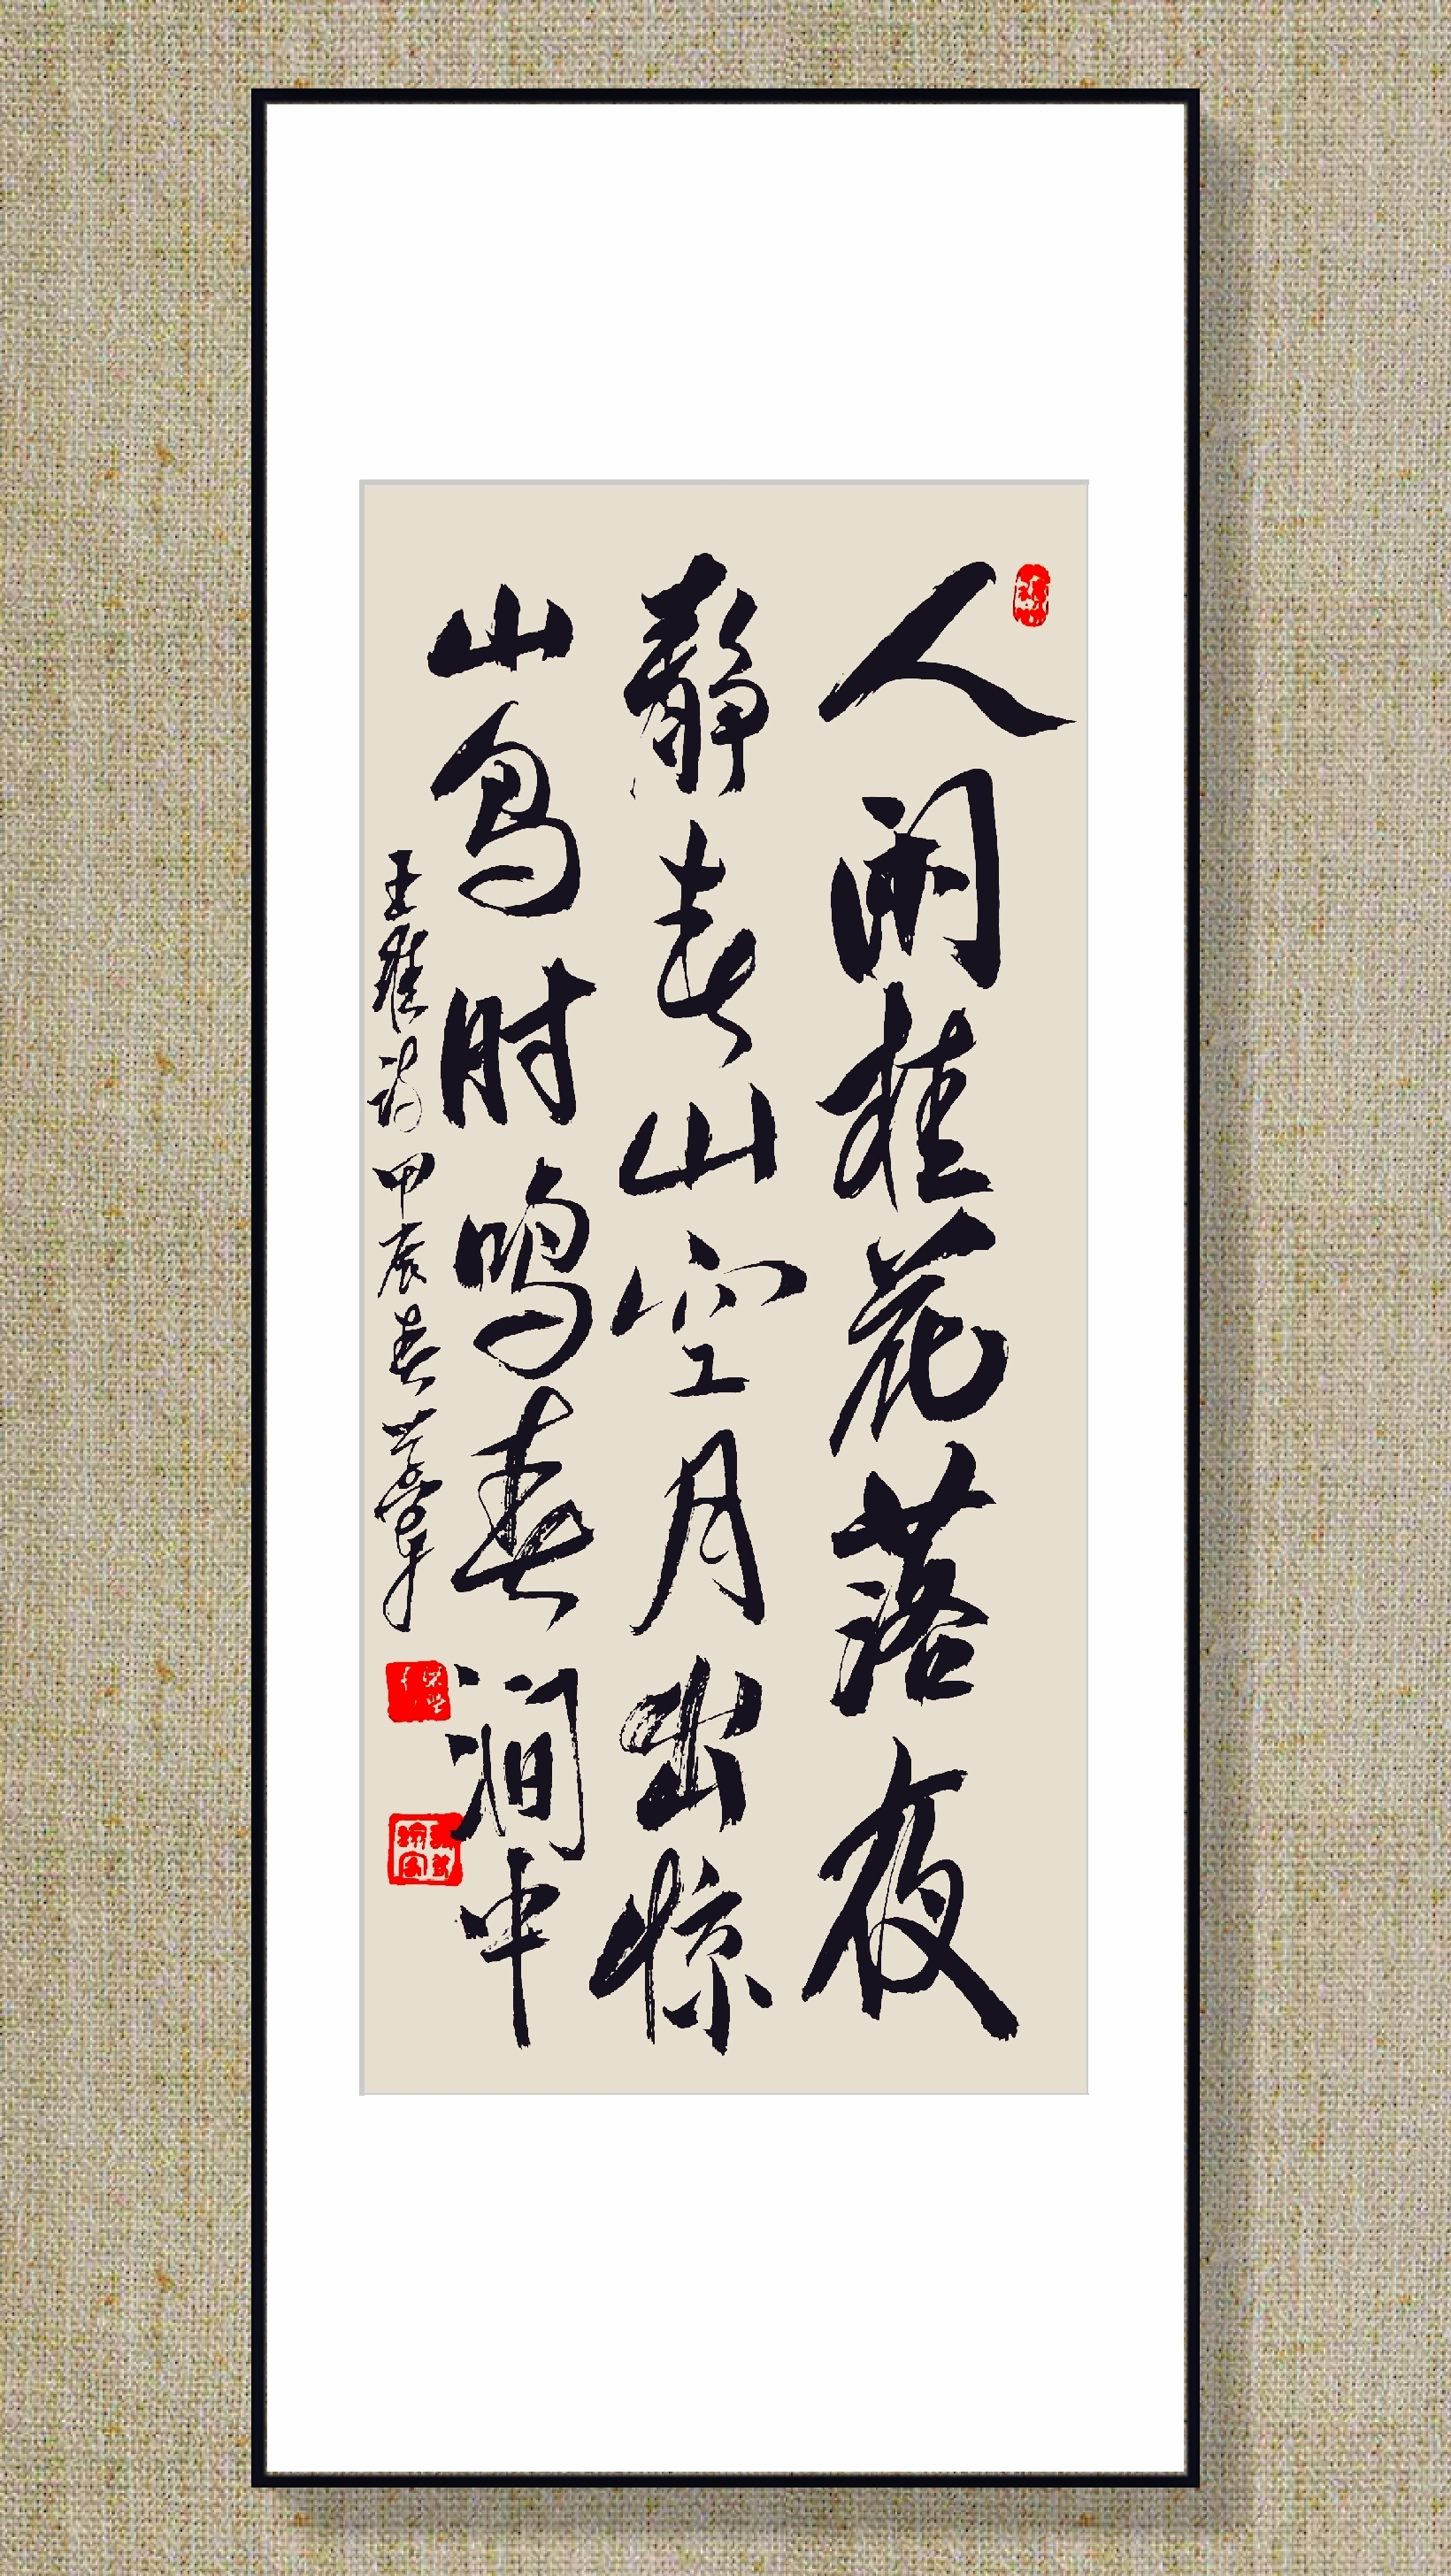 人闲桂花落夜
静春山空月出惊
山鸟时鸣春涧中
王维诗甲辰春